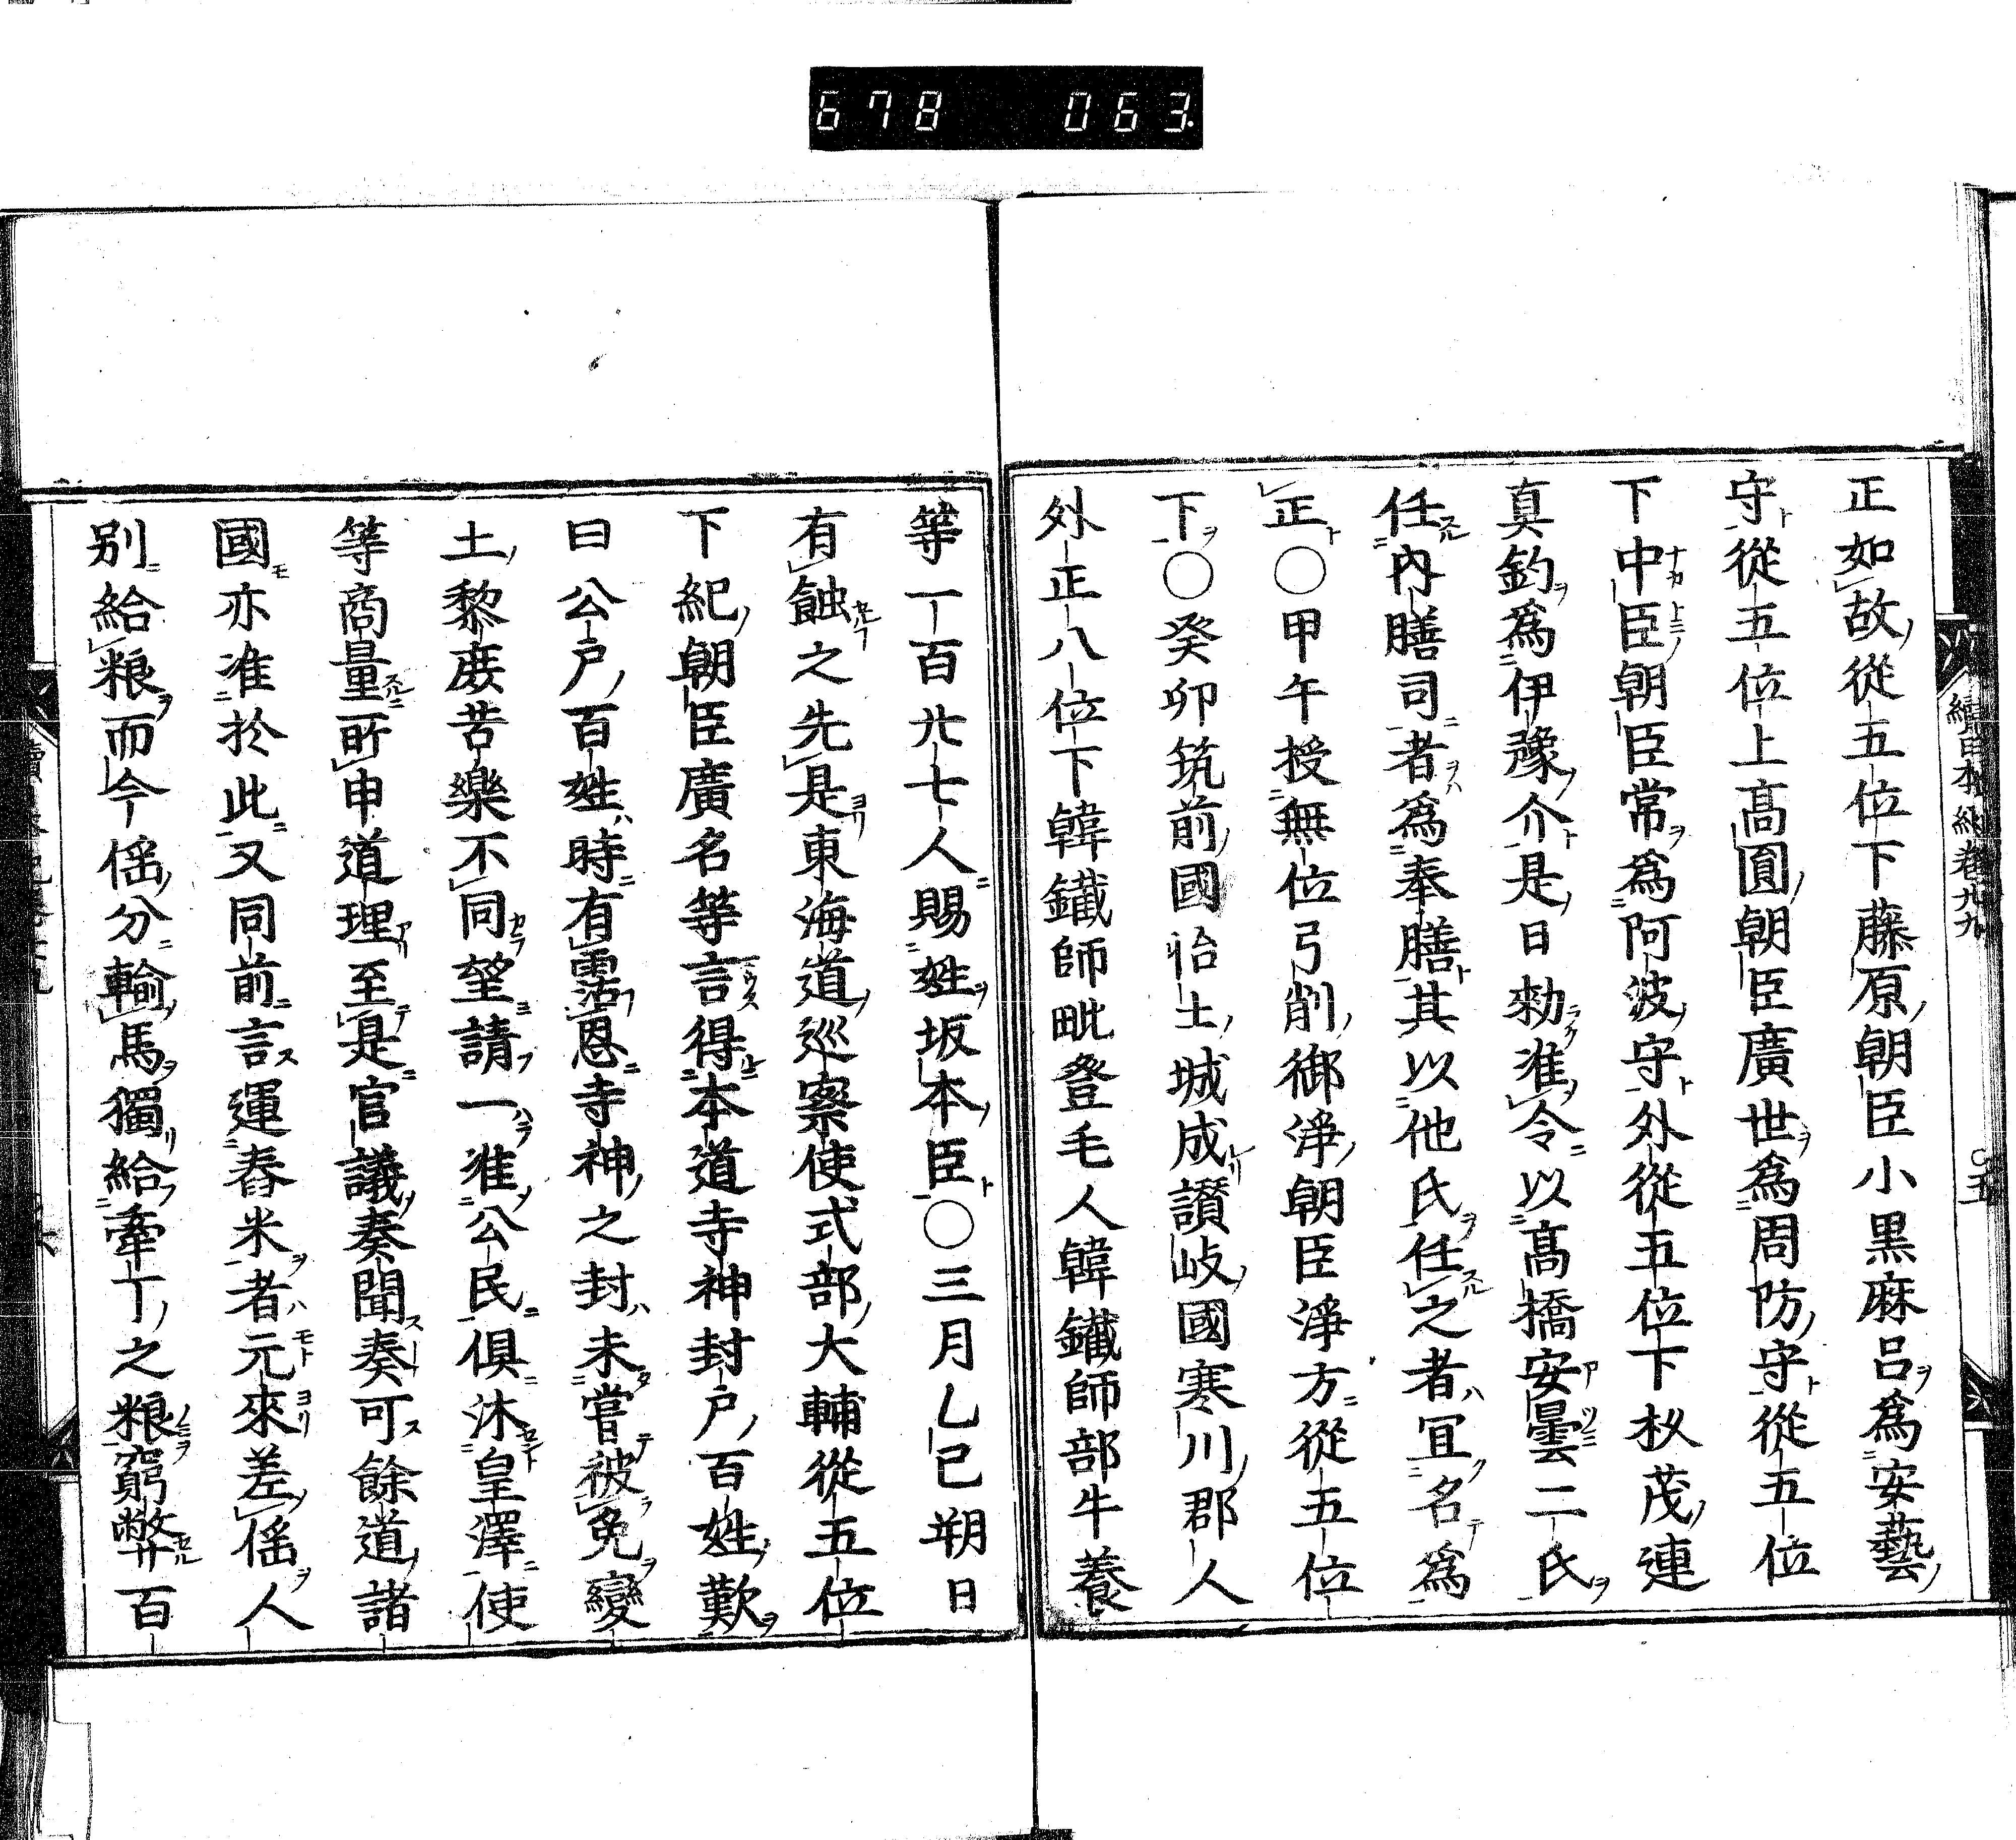 678 063
正如故從五位下藤原朝臣小黒麻呂爲安藝
守從五位上高圓朝臣廣世爲周防守從五位
下中臣朝臣常爲阿波守外從五位下杖茂連
真釣爲伊豫介是日勅准令以高橋安曇二氏
任內膳司者爲奉膳其以他氏任之者宜名爲
正○甲午授無位弓削御淨朝臣淨方從五位
下○癸卯筑前國怡土城成讃岐國寒川郡人
外正八位下韓鐵師毗登毛人韓鐵師部牛養
等一百卄七人賜姓坂本臣○三月乙巳朔日
有蝕之先是東海道巡察使式部大輔從五位
下紀朝臣廣名等言得本道寺神封戸百姓歎
曰公戸百姓時有霑恩寺神之封未嘗被免變
土黎庶苦樂不同望請一准公民俱沐皇澤使
等商量所申道理至是官議奏聞奏可餘道諸
國亦准於此又同前言運舂米者元來差徭人
別給粮而今徭分輸馬獨給牽丁之粮窮弊百